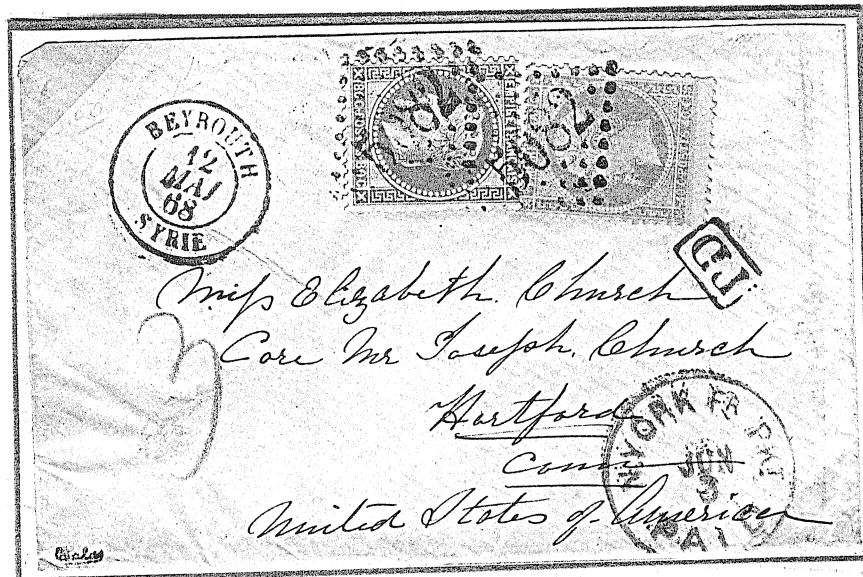 BEYROUTH
12
MAI
68
SYRIE
5082
PD
Miss Elizabeth. Church
Care Mr Joseph. Church
Hartford
Conn
United States of America
N. YORK FR. PKT
JUN
3
PAID